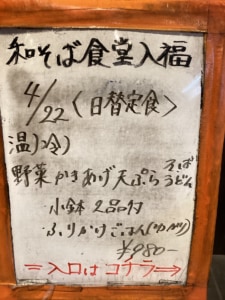 和そば食堂入福
4/22〈日替定食〉
温)冷)
野菜かきあげ天ぷらそばうどん
・小鉢2品付
・ふりかけごはん(ワカメ)
¥980-
=入口はコチラ⇒